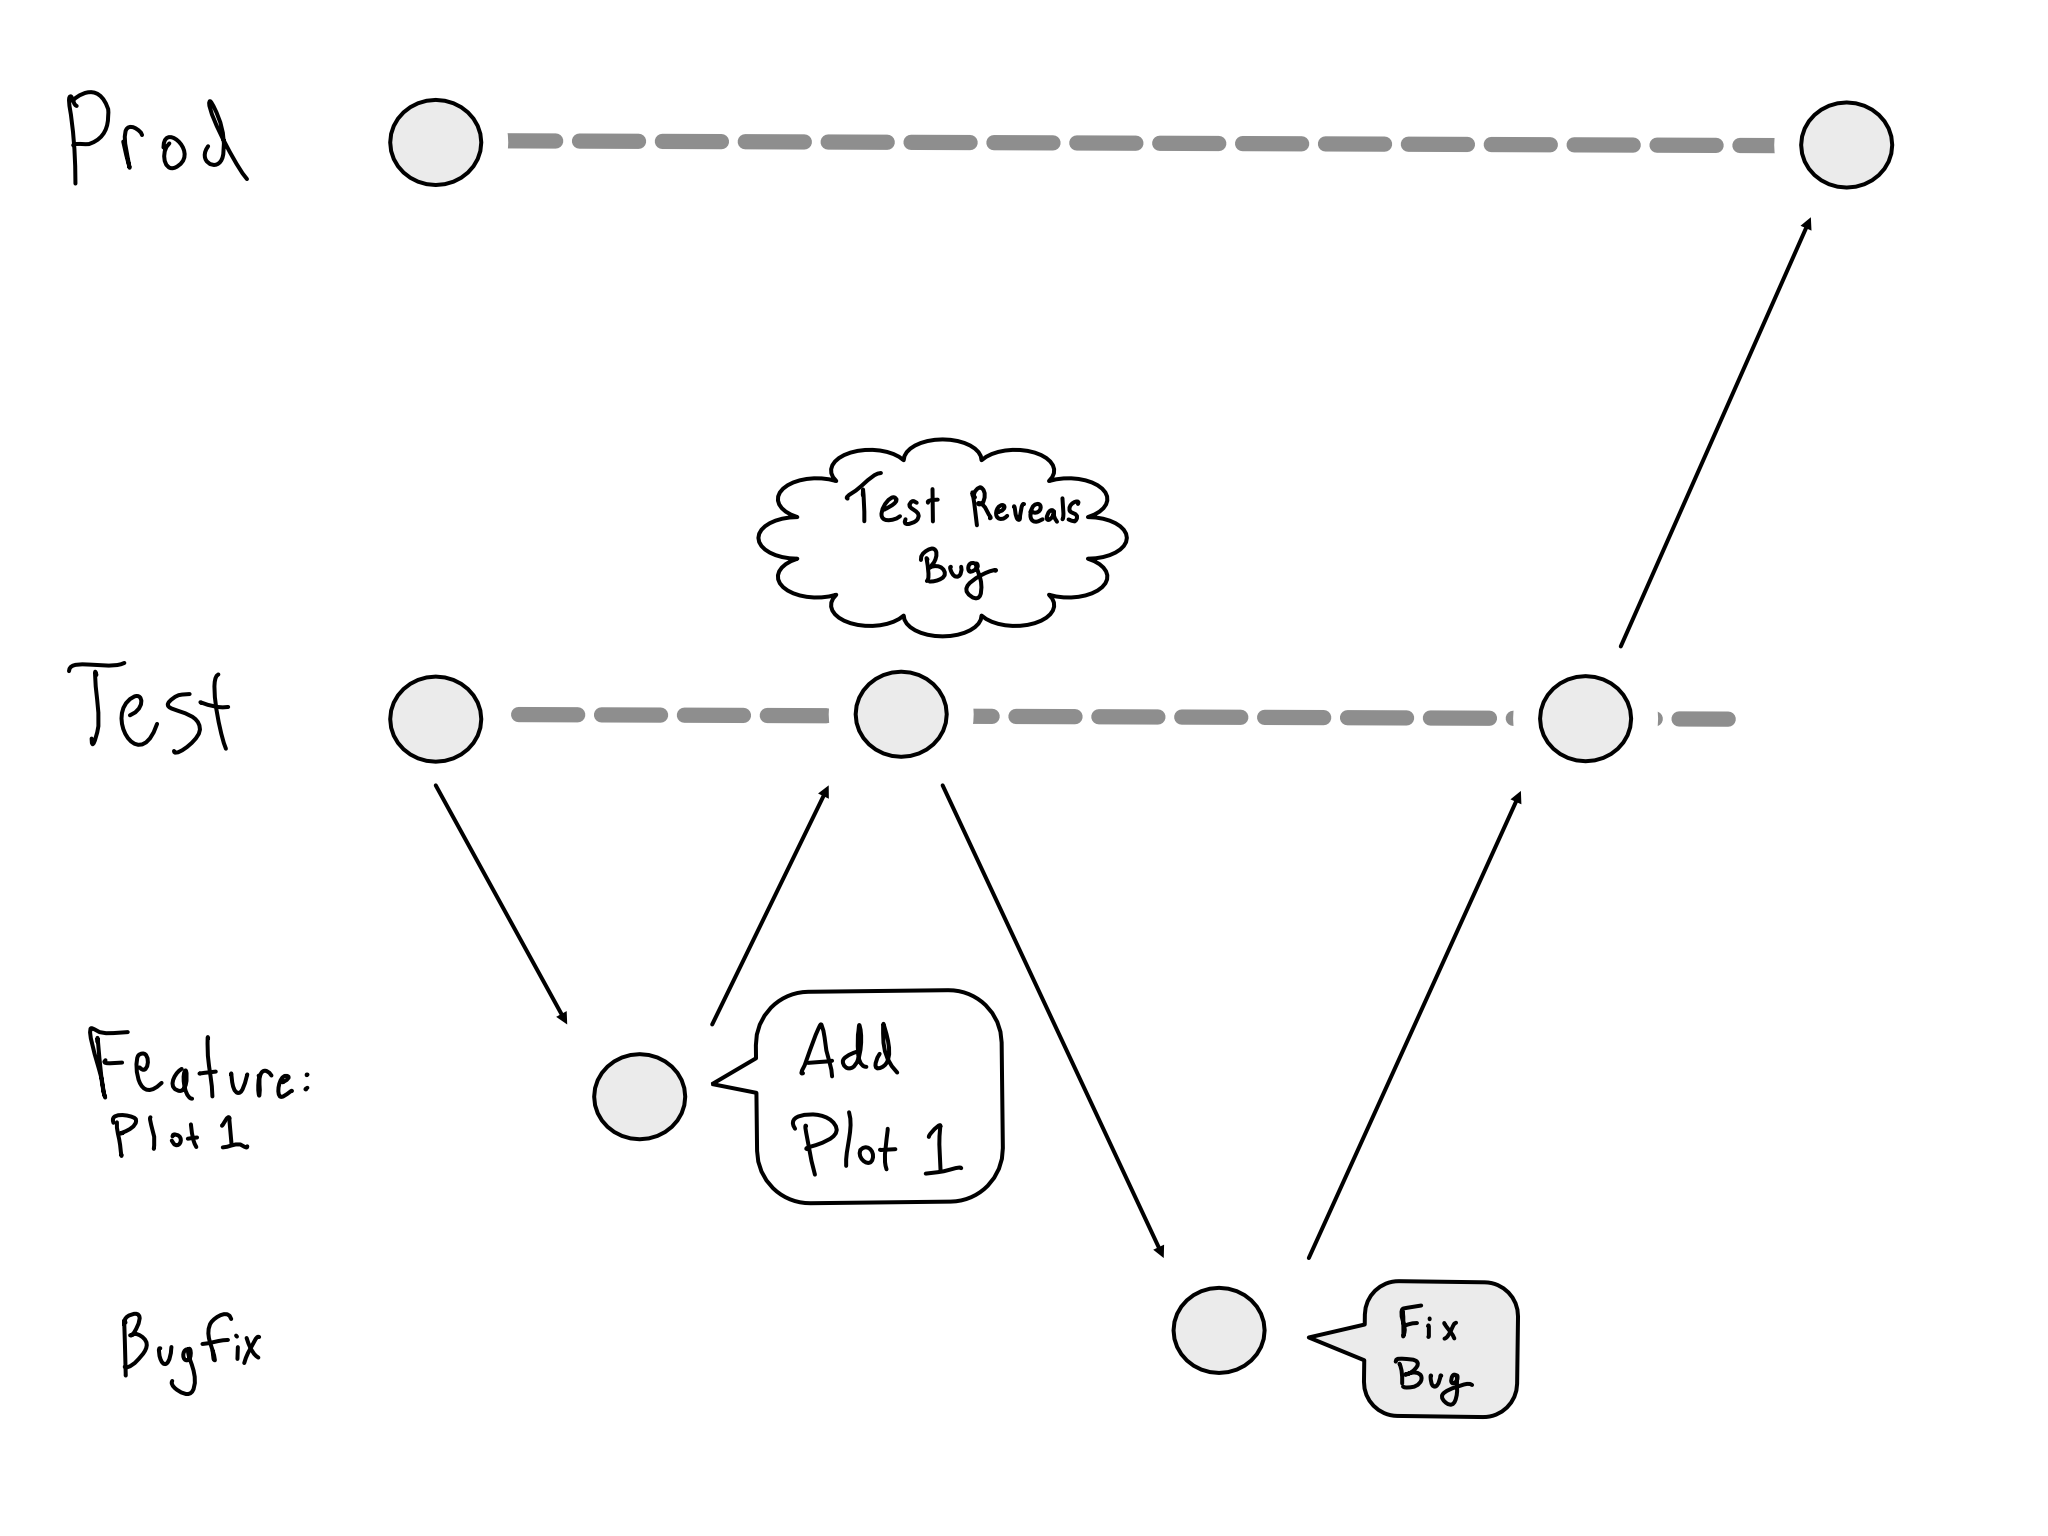 Prod
Test Reveals
Bug
Test
Feature:
Plot 1
Add
Plot 1
Bugfix
Fix
Bug